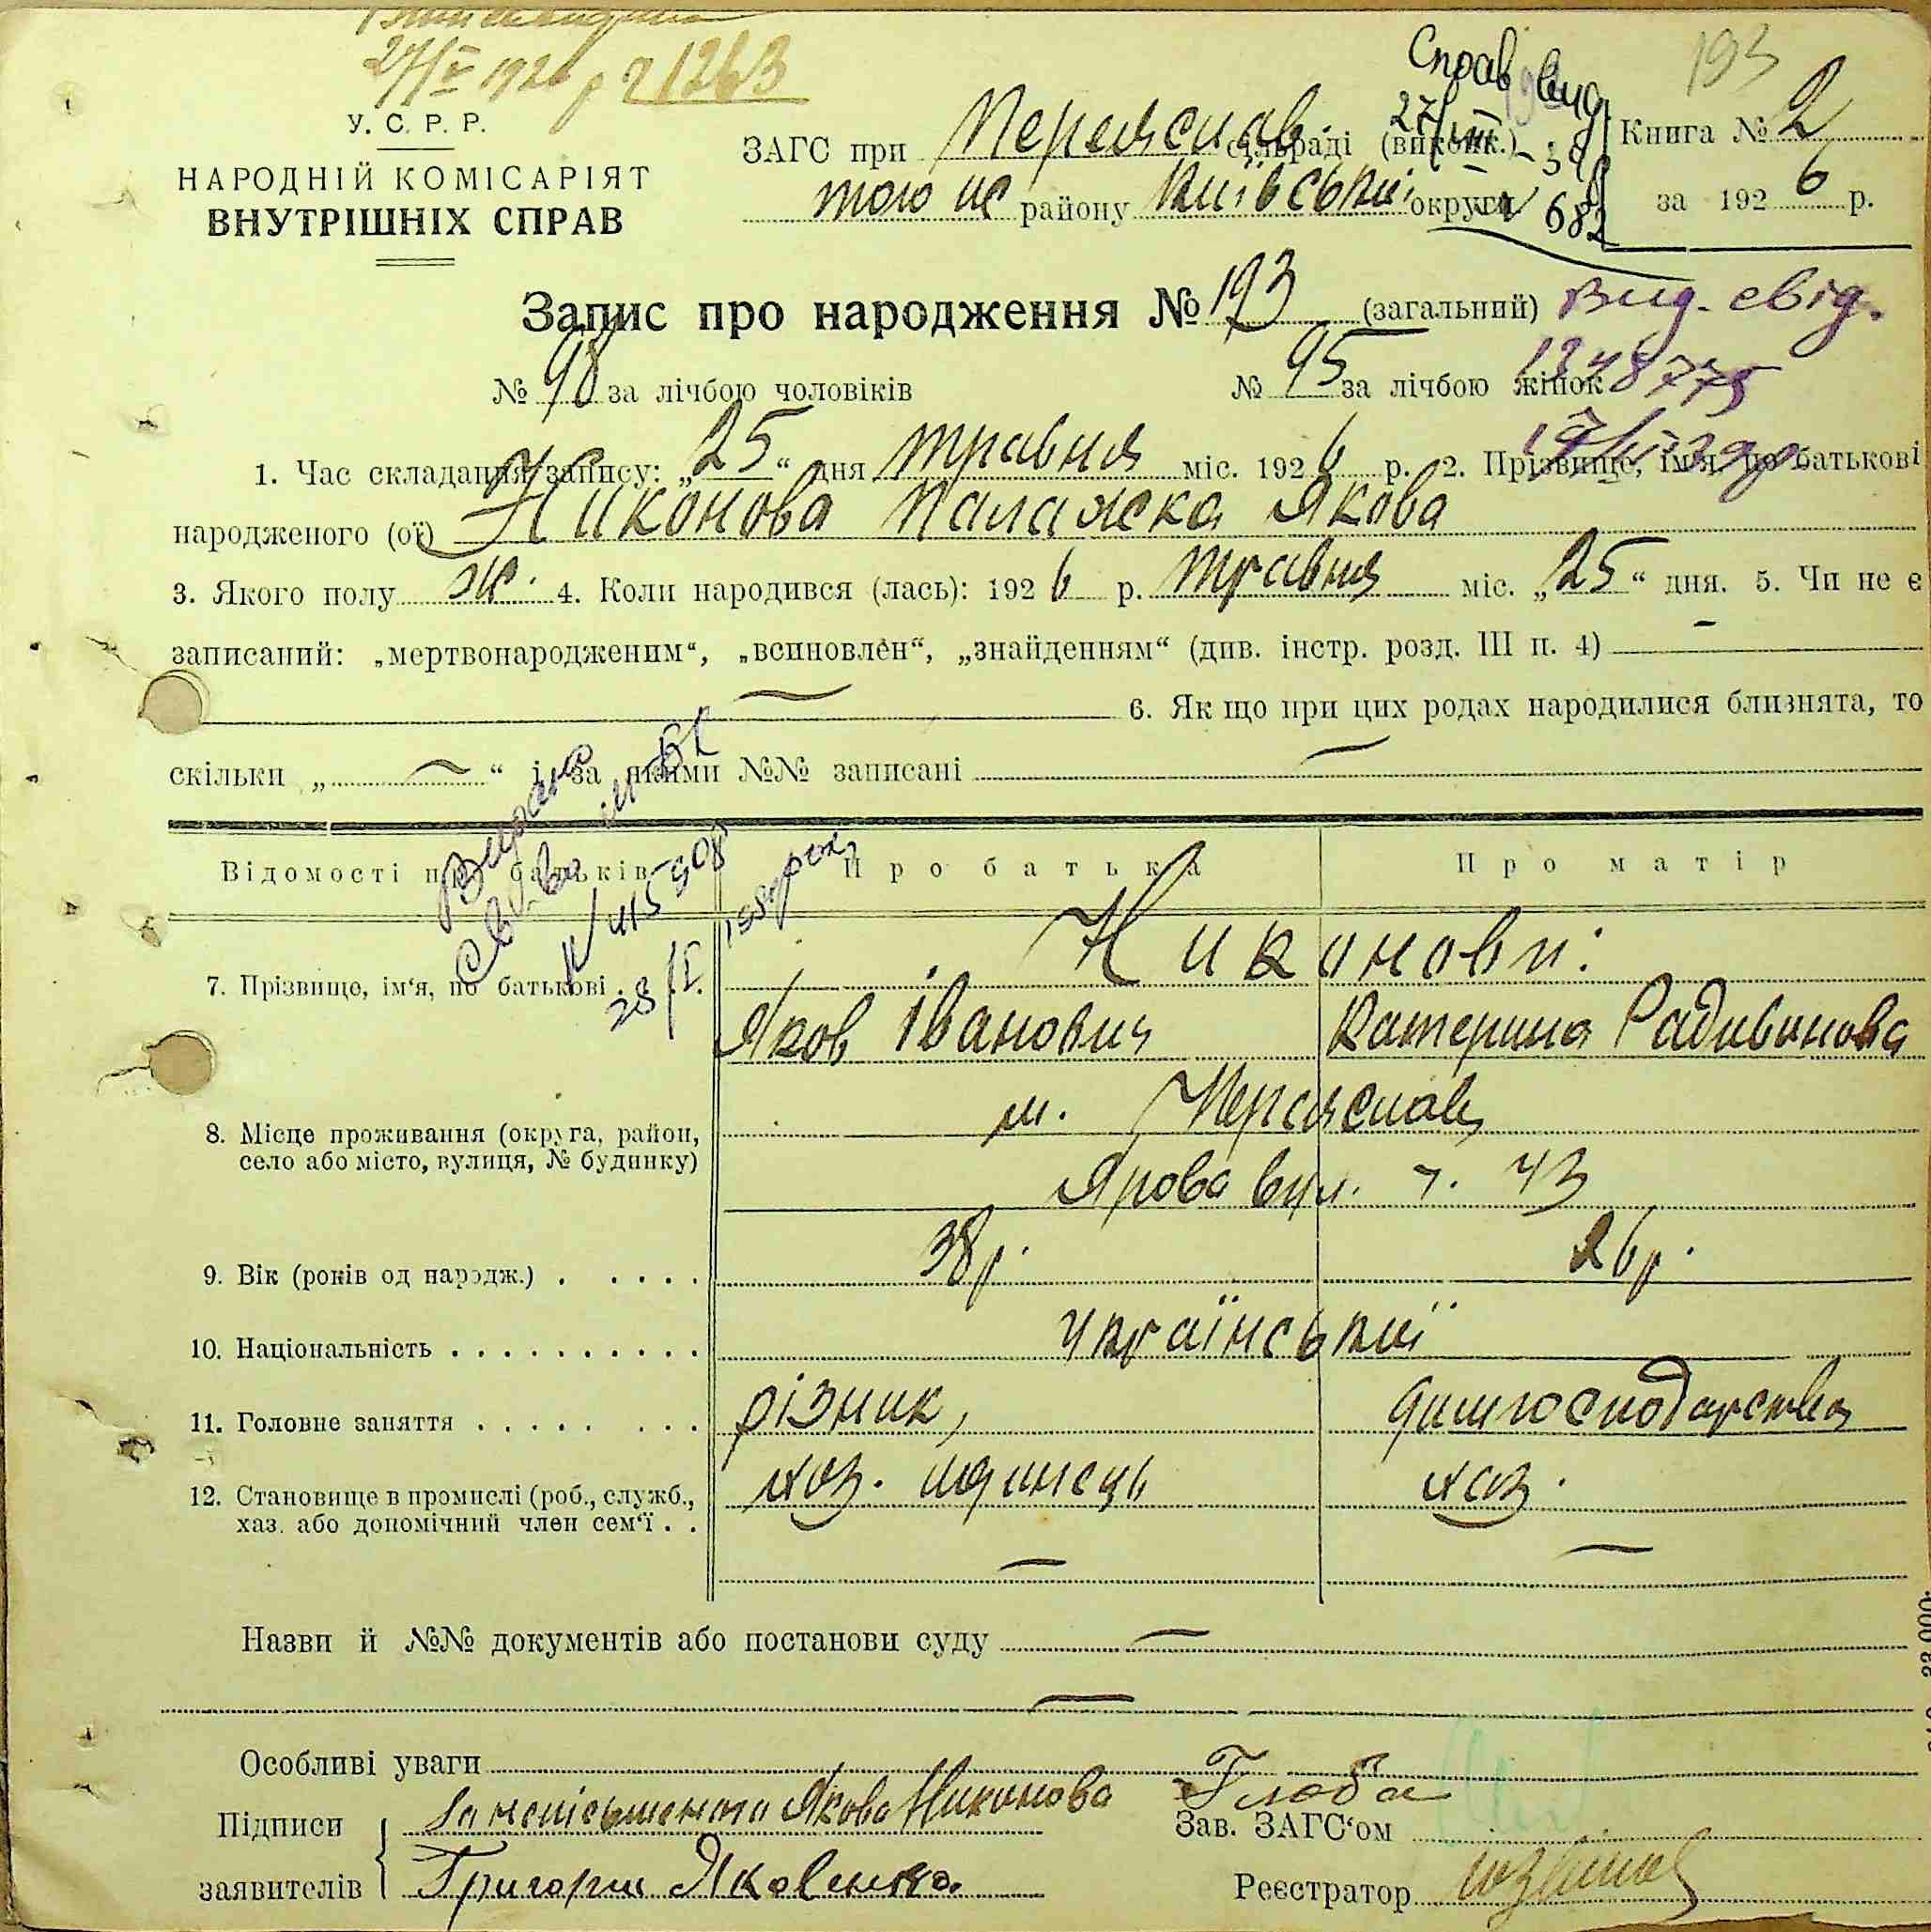 27/V 1926 р 21263
193
Справ вид.
27/III - 38
№ 682
У. С. Р. Р.
НАРОДНІЙ КОМІСАРІЯТ
ВНУТРІШНІХ СПРАВ
ЗАГС при Переяслав. сільраді (виконк.)
того ж району Київської округи
Книга № 2
за 1926 р.
Запис про народження № 193 (загальний)
Вид. свід.
№ 98 за лічбою чоловіків № 95 за лічбою жінок
1. Час складання запису: „25“ дня травня міс. 1926 р. 2. Прізвище, ім'я, по батькові
народженого (ої) Никонова Палажка Якова
3. Якого полу ж. 4. Коли народився (лась): 1926 р. травня міс. „25“ дня. 5. Чи не є
записаний: „мертвонародженим“, „всиновлен“, „знайденням“ (див. інстр. розд. III п. 4) –
– 6. Як що при цих родах народилися близнята, то
скільки „ – “ і за якими №№ записані –
Видано
Відомості про батьків Про батька Про матір
Никонови:
7. Прізвище, ім'я, по батькові . . .
Яков Іванович Катерина Радивонова
м. Переяслав
8. Місце проживання (округа, район,
село або місто, вулиця, № будинку)
Ярова вул. ч. 43
9. Вік (років од народж.) . . . . . 38 р. 26 р.
10. Національність . . . . . . . . . . української
11. Головне заняття . . . . . . . . різник, дим господарства
12. Становище в промислі (роб., служб.,
хаз. або допомічний член сем'ї . .
хоз. одинець хоз.
– –
Назви й №№ документів або постанови суду –
–
Особливі уваги
Підписи
заявителів
За неписьменого Якова Никонова Глоба
Григорий Яковенко.
Зав. ЗАГС'ом
Реєстратор